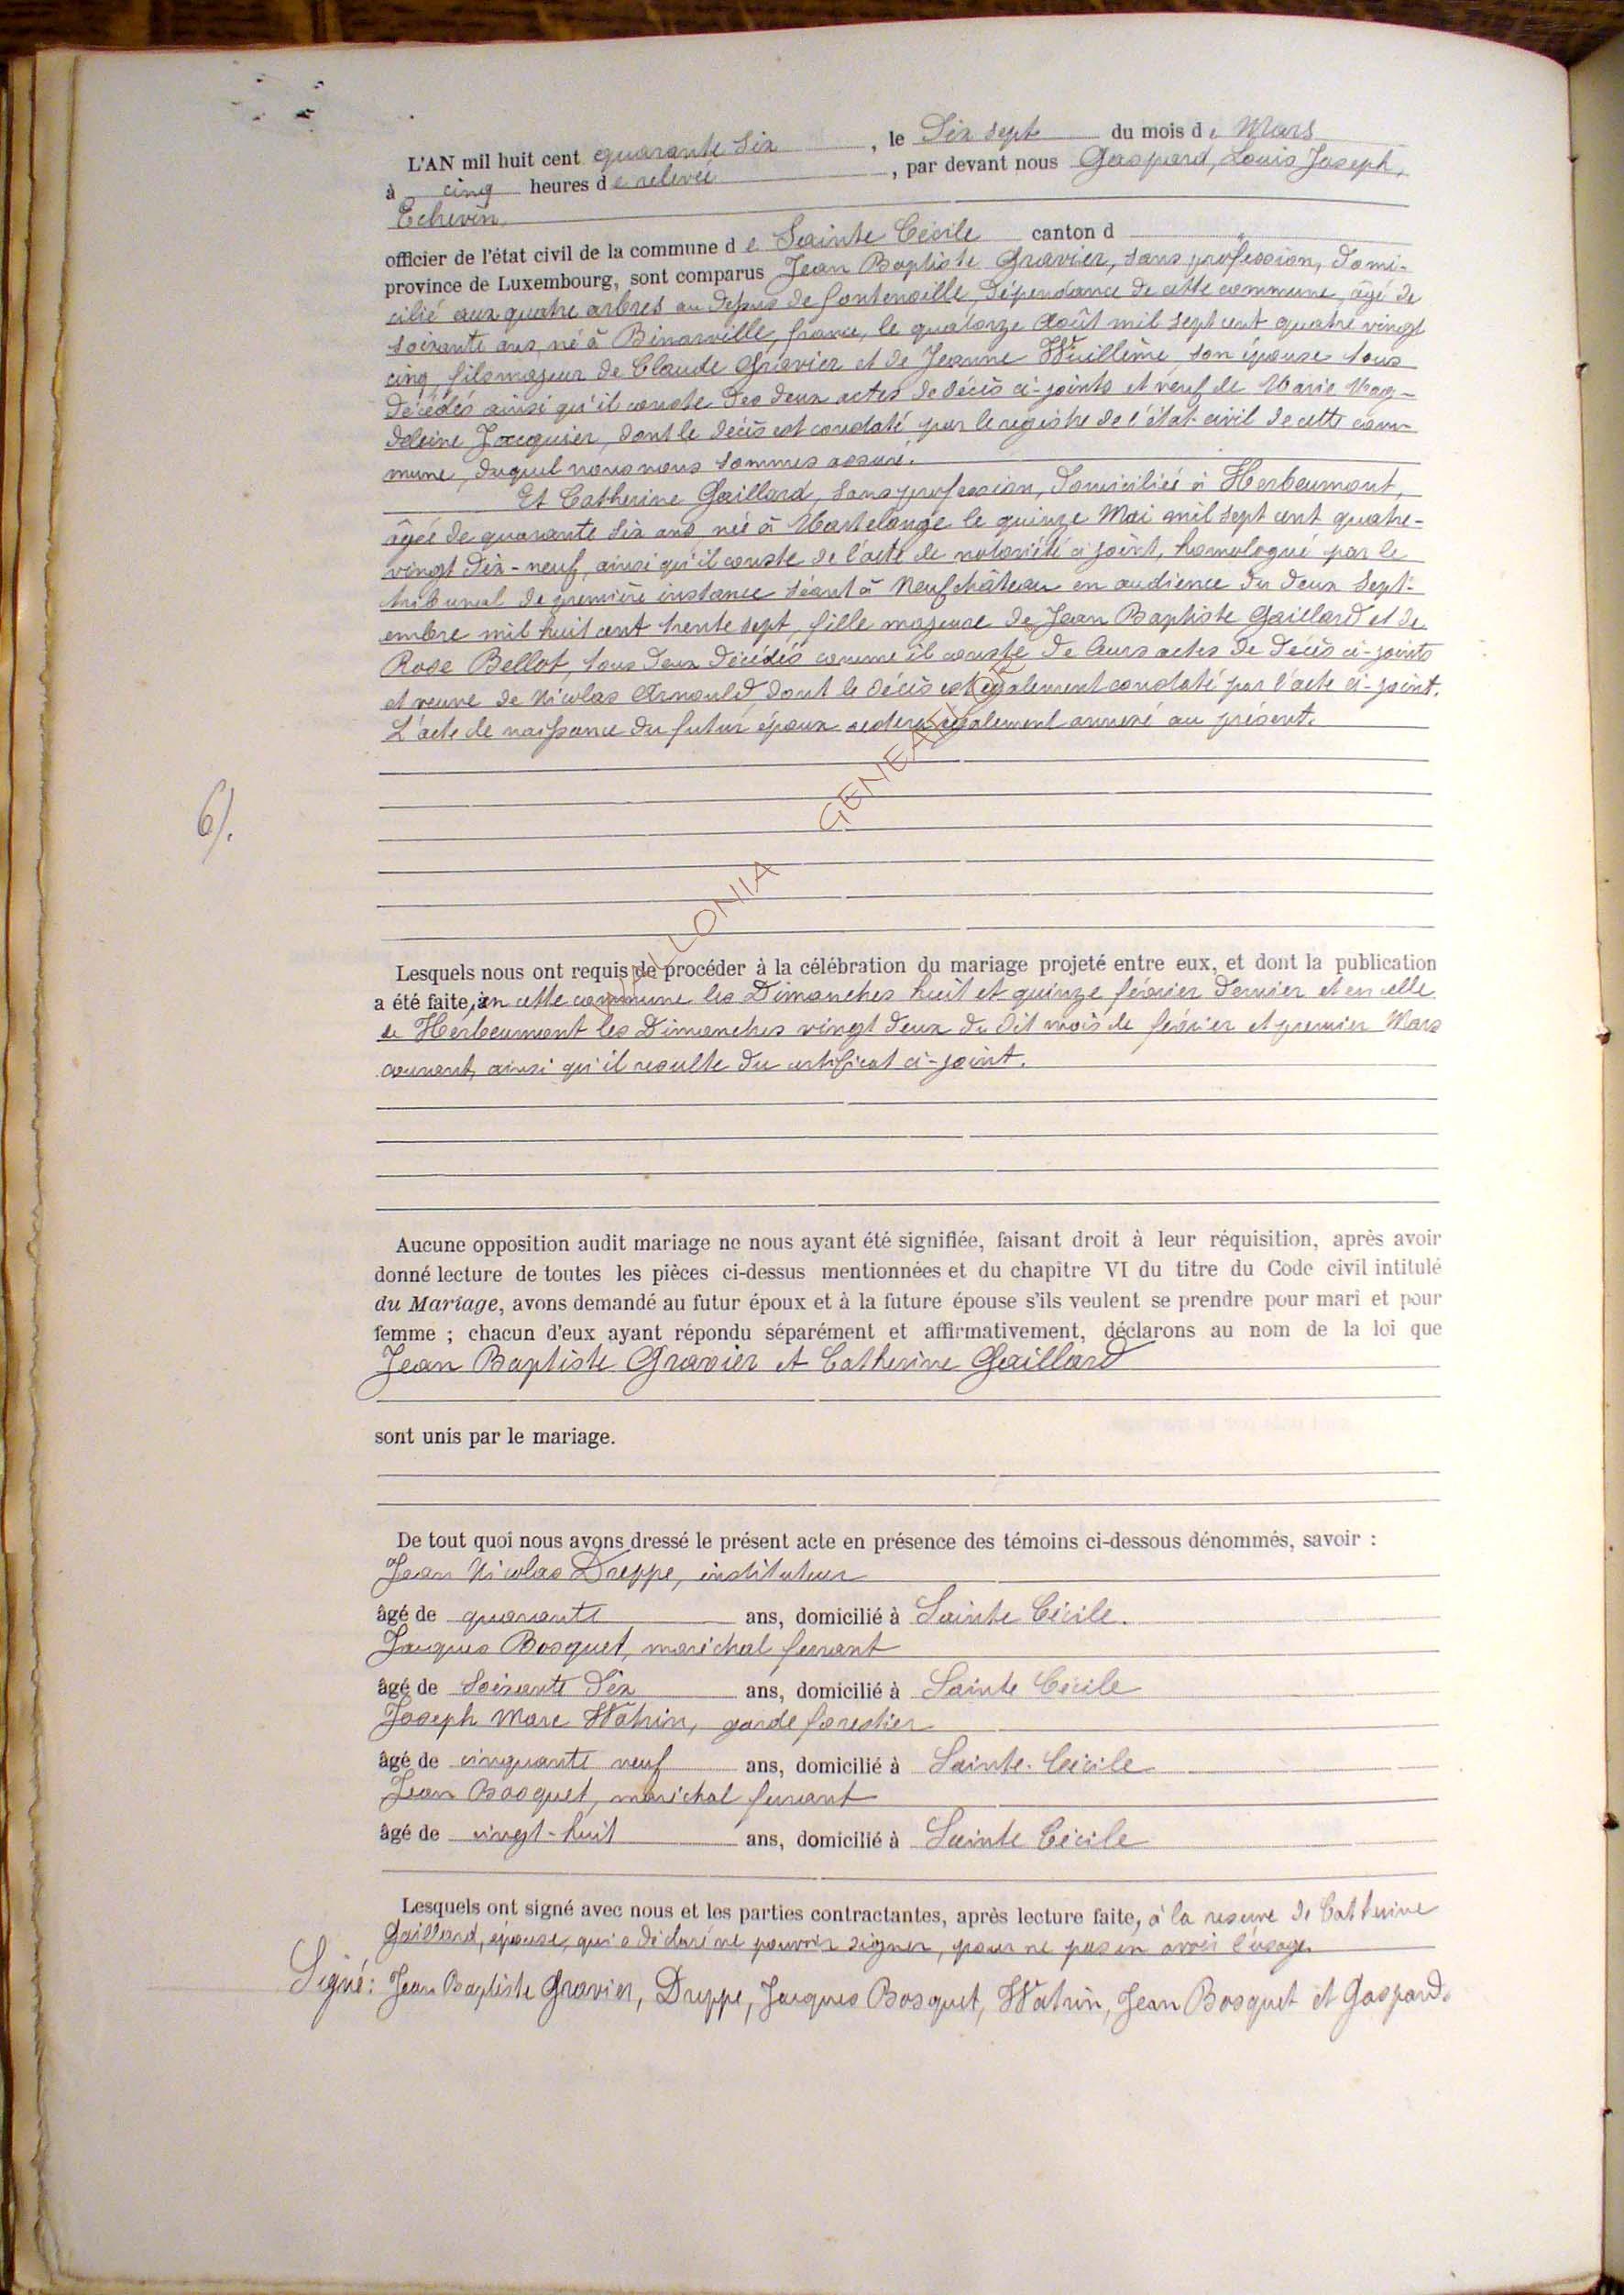 L'AN mil huit cent quarante six, le Dix sept du mois de Mars
à cinq heures de relevée, par devant nous Gaspard, Louis Joseph,
Echevin
officier de l'état civil de la commune de Sainte Cécile canton d
province de Luxembourg, sont comparus Jean Baptiste Gravier, sans profession, domi-
cilié aux quatre arbres au dessus de fontenoille, dépendance de cette commune, âgé de
soixante ans, né à Binarville, france, le quatorze Août mil sept cent quatre vingt
cinq, fils majeur de Claude Gravier et de Jeanne Wuillème, son épouse tous
décédés ainsi qu'il conste des deux actes de décès ci-joints et veuf de Marie Mag-
deleine Jacquier, dont le décès est constaté par le registre de l'état-civil de cette com-
mune, duquel nous nous sommes assuré.
Et Catherine Gaillard, sans profession, domiciliée à Herbeumont,
âgée de quarante six ans née à Martelange le quinze Mai mil sept cent quatre-
vingt dix-neuf, ainsi qu'il conste de l'acte de notoriété ci joint, homologué par le
tribunal de première instance séant à Neufchâteau en audience du deux Sept-
embre mil huit cent trente sept, fille majeure de Jean Baptiste Gaillard et de
Rose Bellot, tous deux décédés comme il conste de leurs actes de décès ci-joints
et veuve de Nicolas Arnould, dont le décès est également constaté par l'acte ci-joint.
L'acte de naissance du futur époux restera également annexé au présent.
6).
Lesquels nous ont requis de procéder à la célébration du mariage projeté entre eux, et dont la publication
a été faite, en cette commune les Dimanches huit et quinze février dernier et en celle
de Herbeumont les Dimanches vingt deux du dit mois de février et premier Mars
courant, ainsi qu'il resulte du certificat ci-joint.
Aucune opposition audit mariage ne nous ayant été signifiée, faisant droit à leur réquisition, après avoir
donné lecture de toutes les pièces ci-dessus mentionnées et du chapitre VI du titre du Code civil intitulé
du Mariage, avons demandé au futur époux et à la future épouse s'ils veulent se prendre pour mari et pour
femme ; chacun d'eux ayant répondu séparément et affirmativement, déclarons au nom de la loi que
Jean Baptiste Gravier et Catherine Gaillard
sont unis par le mariage.
De tout quoi nous avons dressé le présent acte en présence des témoins ci-dessous dénommés, savoir :
Jean Nicolas Dreppe, instituteur
âgé de quarante ans, domicilié à Sainte Cécile.
Jacques Bosquet, maréchal ferrant
âgé de Soixante Dix ans, domicilié à Sainte Cécile
Joseph Marc Watrin, garde forestier
âgé de cinquante neuf ans, domicilié à Sainte-Cécile
Jean Bosquet, maréchal ferrant
âgé de vingt-huit ans, domicilié à Sainte Cécile
Lesquels ont signé avec nous et les parties contractantes, après lecture faite, à la reserve de Catherine
Gaillard, épouse, qui a déclaré ne pouvoir signer, pour ne pas en avoir l'usage.
Signé: Jean Baptiste Gravier, Dreppe, Jacques Bosquet, Watrin, Jean Bosquet et Gaspard.